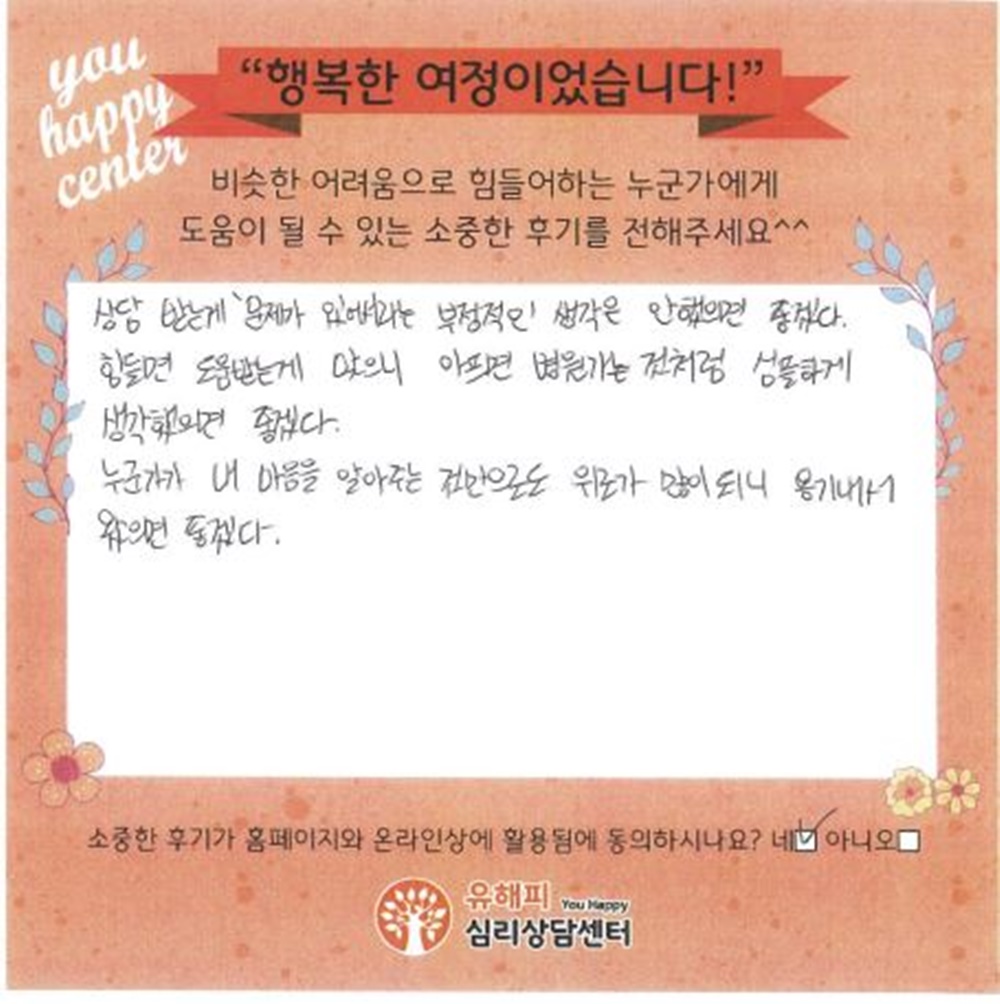 you
happy
center
“행복한 여정이었습니다!”
비슷한 어려움으로 힘들어하는 누군가에게
도움이 될 수 있는 소중한 후기를 전해주세요^^
상담 받는게 '문제가 있어서'라는 부정적인 생각은 안했으면 좋겠다.
힘들면 도움받는게 맞으니 아프면 병원가는 것처럼 심플하게
생각했으면 좋겠다.
누군가가 내 마음을 알아주는 것만으로도 위로가 많이 되니 용기내서
왔으면 좋겠다.
소중한 후기가 홈페이지와 온라인상에 활용됨에 동의하시나요? 네 아니오
유해피 You Happy
심리상담센터